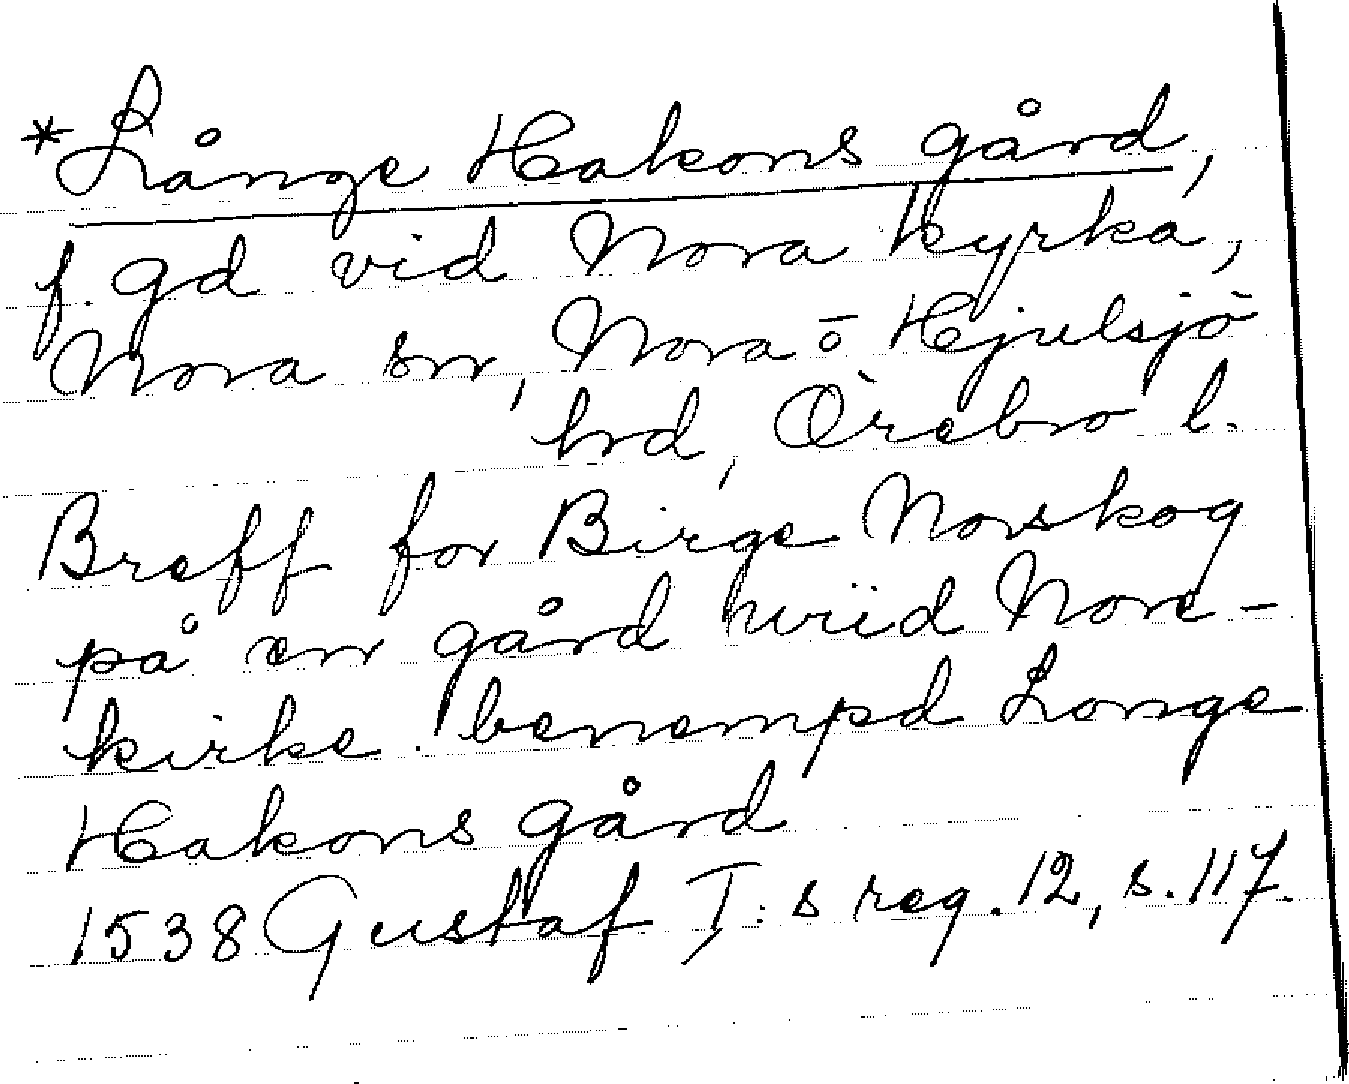 *Långe Hakons gård,
f. gd vid Nora kyrka,
Nora sn, Nora o Hjulsjö
hd, Örebro l.
Breff for Birge Norskog
på en gård hwiid Nore-
kirke benempd Longe
Hakons gård
1538 Gustaf I:s reg. 12, s. 117.